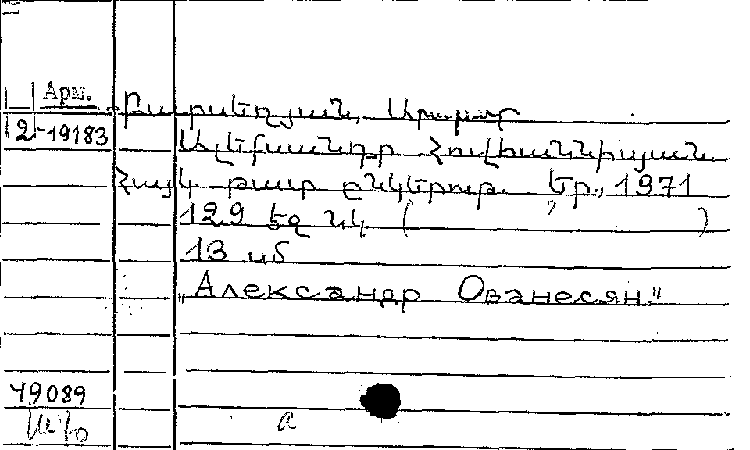 Арм.
2-19183
Բարսեղյան, Արարատ
Ալեքսանդր Հովհաննիսյան
Հայկ թատր ընկերութ. Եր., 1971
129 եզ նկ ( )
13 սմ
"Александр Ованесян"
49089
а